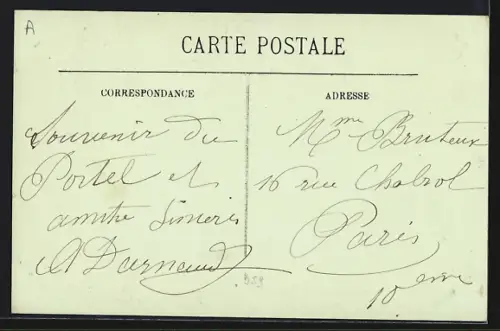 A
CARTE POSTALE
CORRESPONDANCE
Souvenir du
Portel et
amitié sincères
A Darnaud
ADRESSE
Mme Bruteux
16 rue Chabrol
Paris
10eme